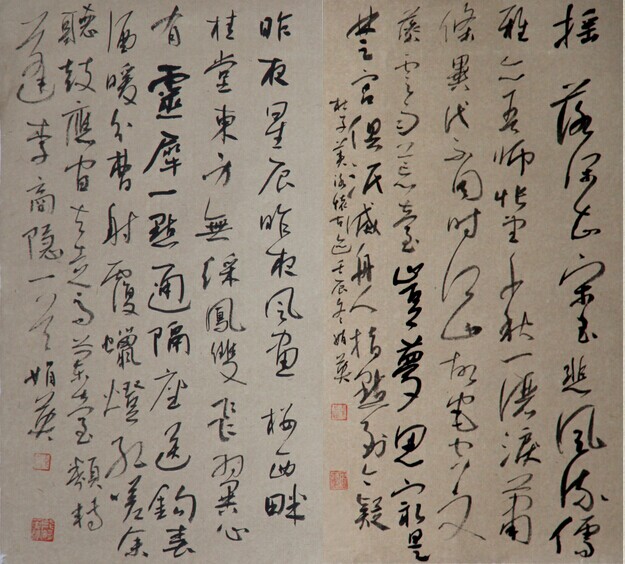 搖落深知宋玉悲風流儒
雅亦吾師悵望千秋一灑淚蕭
條異代不同時江山故宅空文
藻雲雨荒臺豈夢思最是
楚宮俱泯滅舟人指點到今疑
杜子美詠懷古迹壬辰冬娟英
昨夜星辰昨夜風畫樓西畔
桂堂東身無綵鳳雙飛翼心
有靈犀一點通隔座送鉤春
酒暖分曹射覆蠟燈紅嗟余
聽鼓應官去走馬蘭臺類轉
蓬李商隱一首娟英